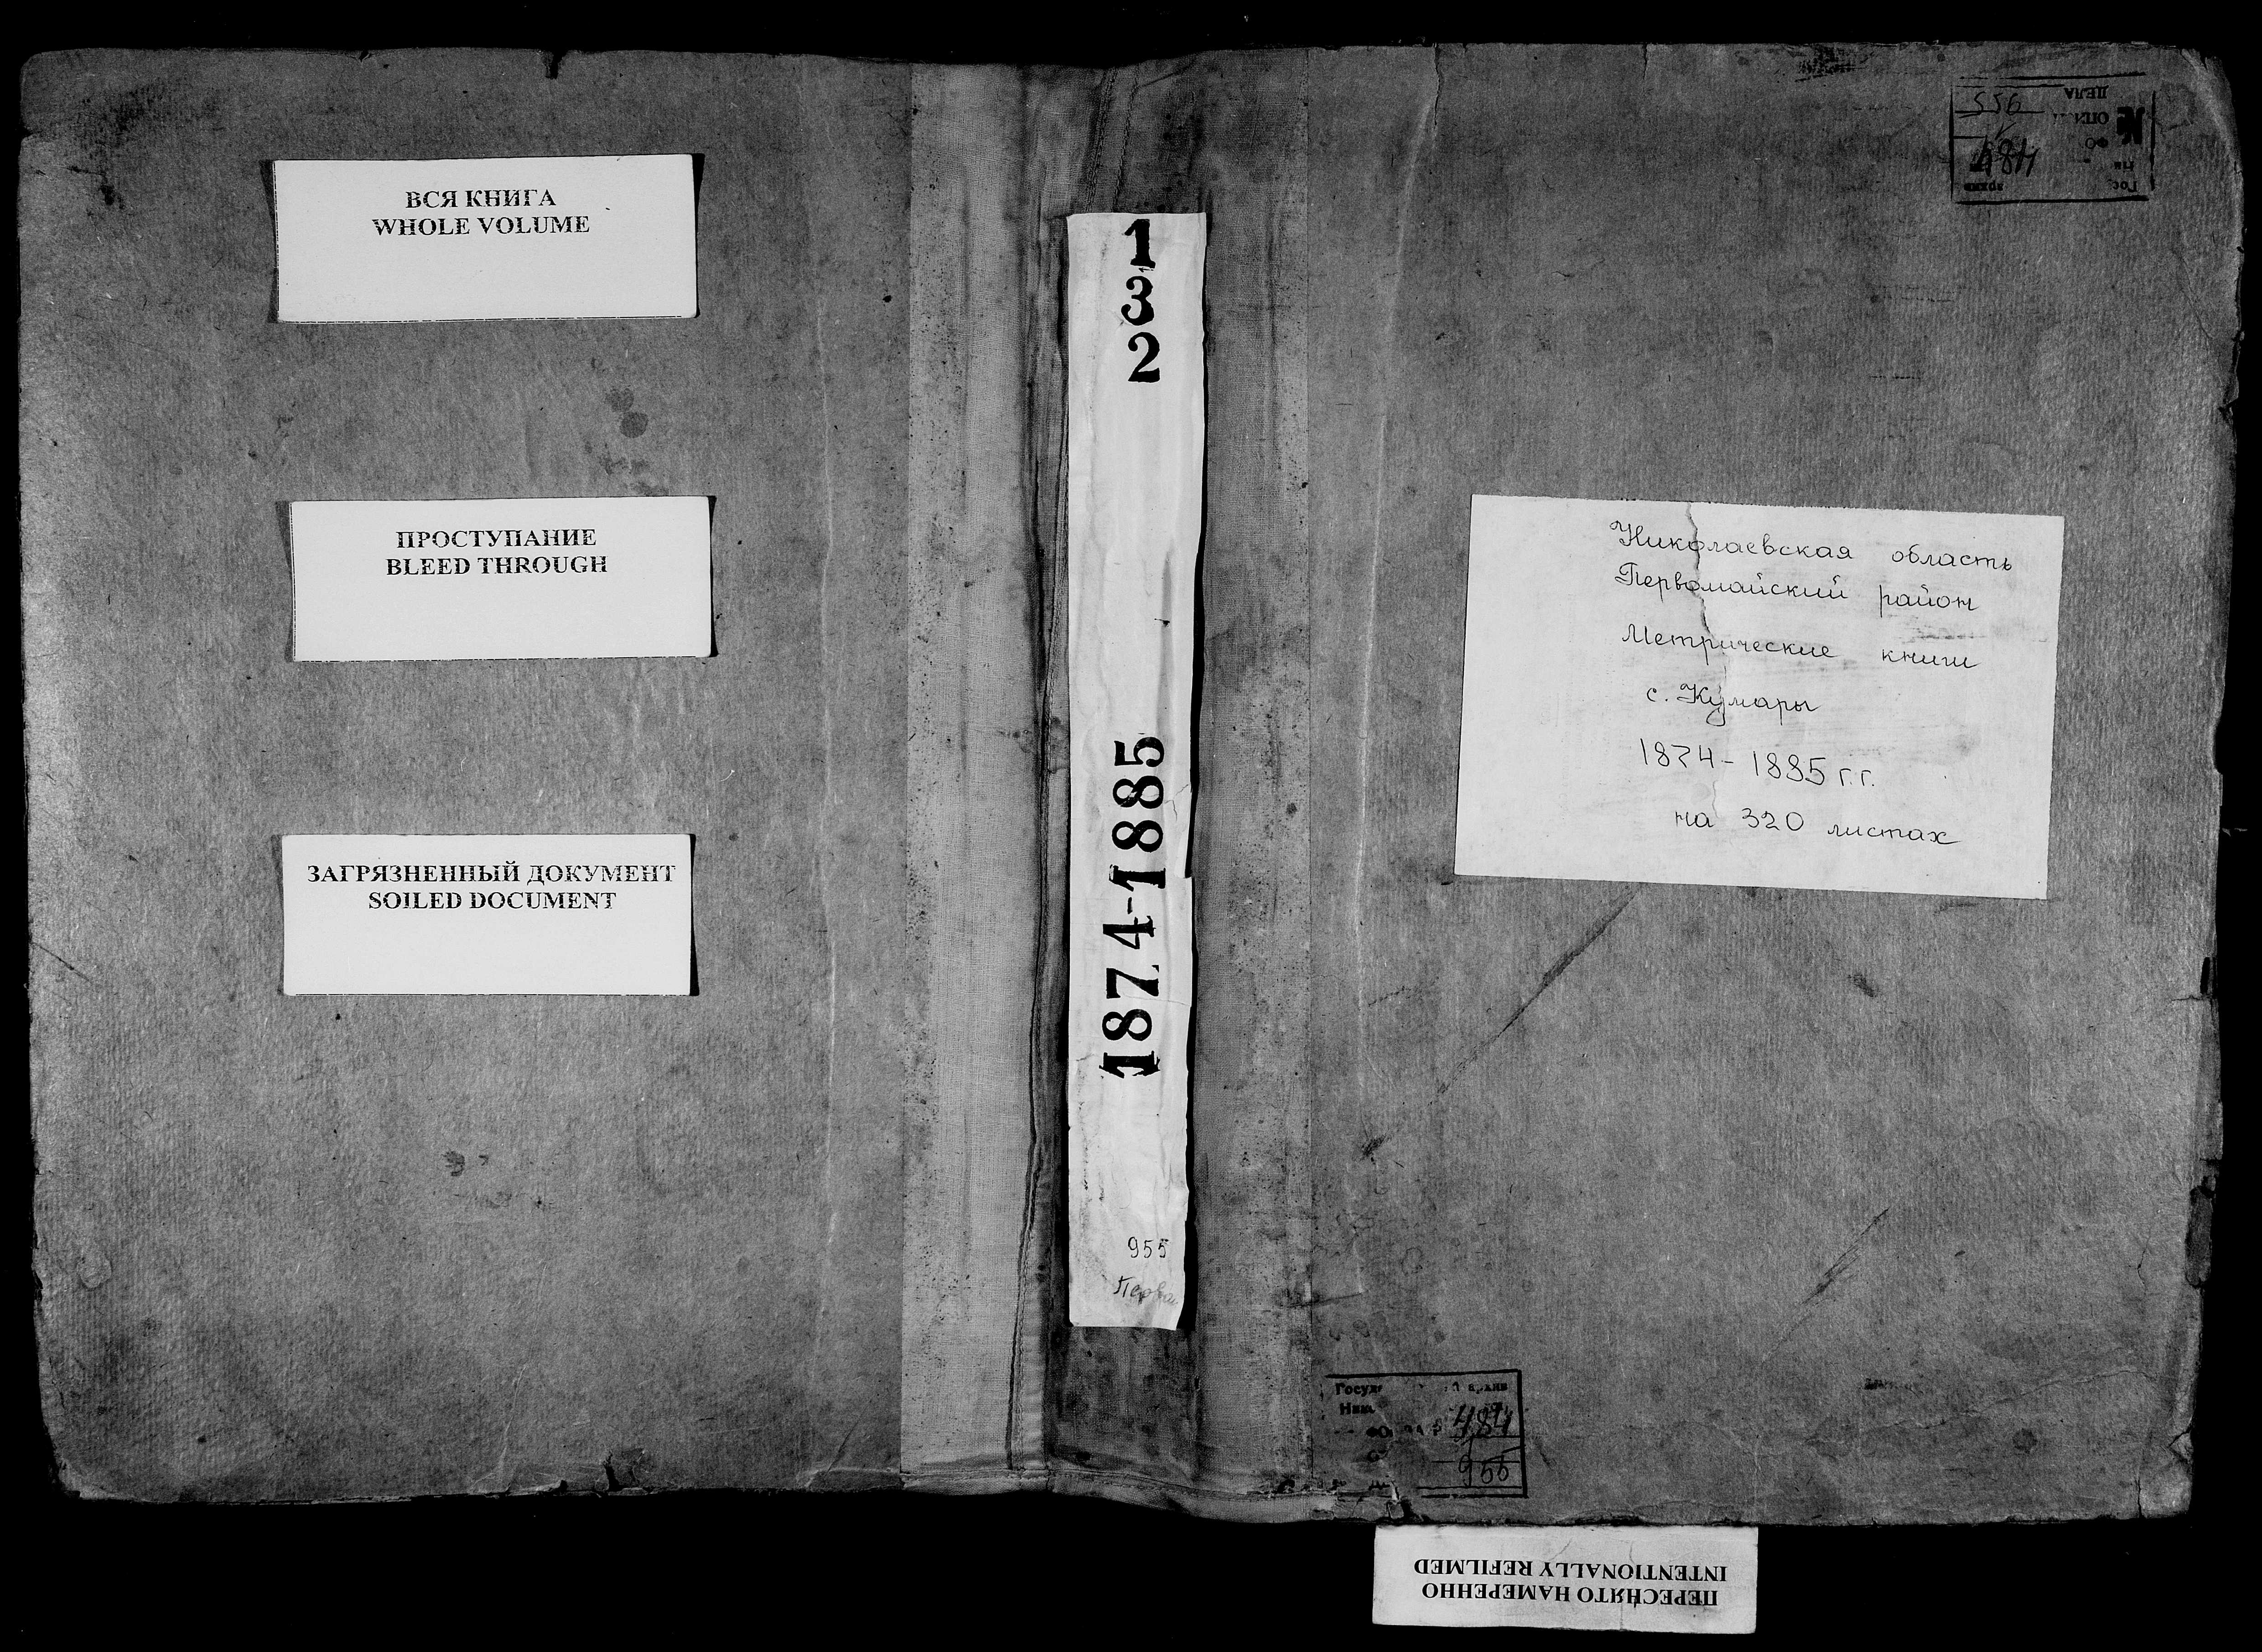 ВСЯ КНИГА
WHOLE VOLUME
ПРОСТУПАНИЕ
BLEED THROUGH
ЗАГРЯЗНЕННЫЙ ДОКУМЕНТ
SOILED DOCUMENT
132
1874-1885
955
Перво
Николаевская область
Первомайский район
Метрические книги
с. Кумары
1874-1885 г.г.
на 320 листах
ДЕЛА
№
484
архив
484
955
ПЕРЕСНЯТО НАМЕРЕННО
INTENTIONALLY REFILMED